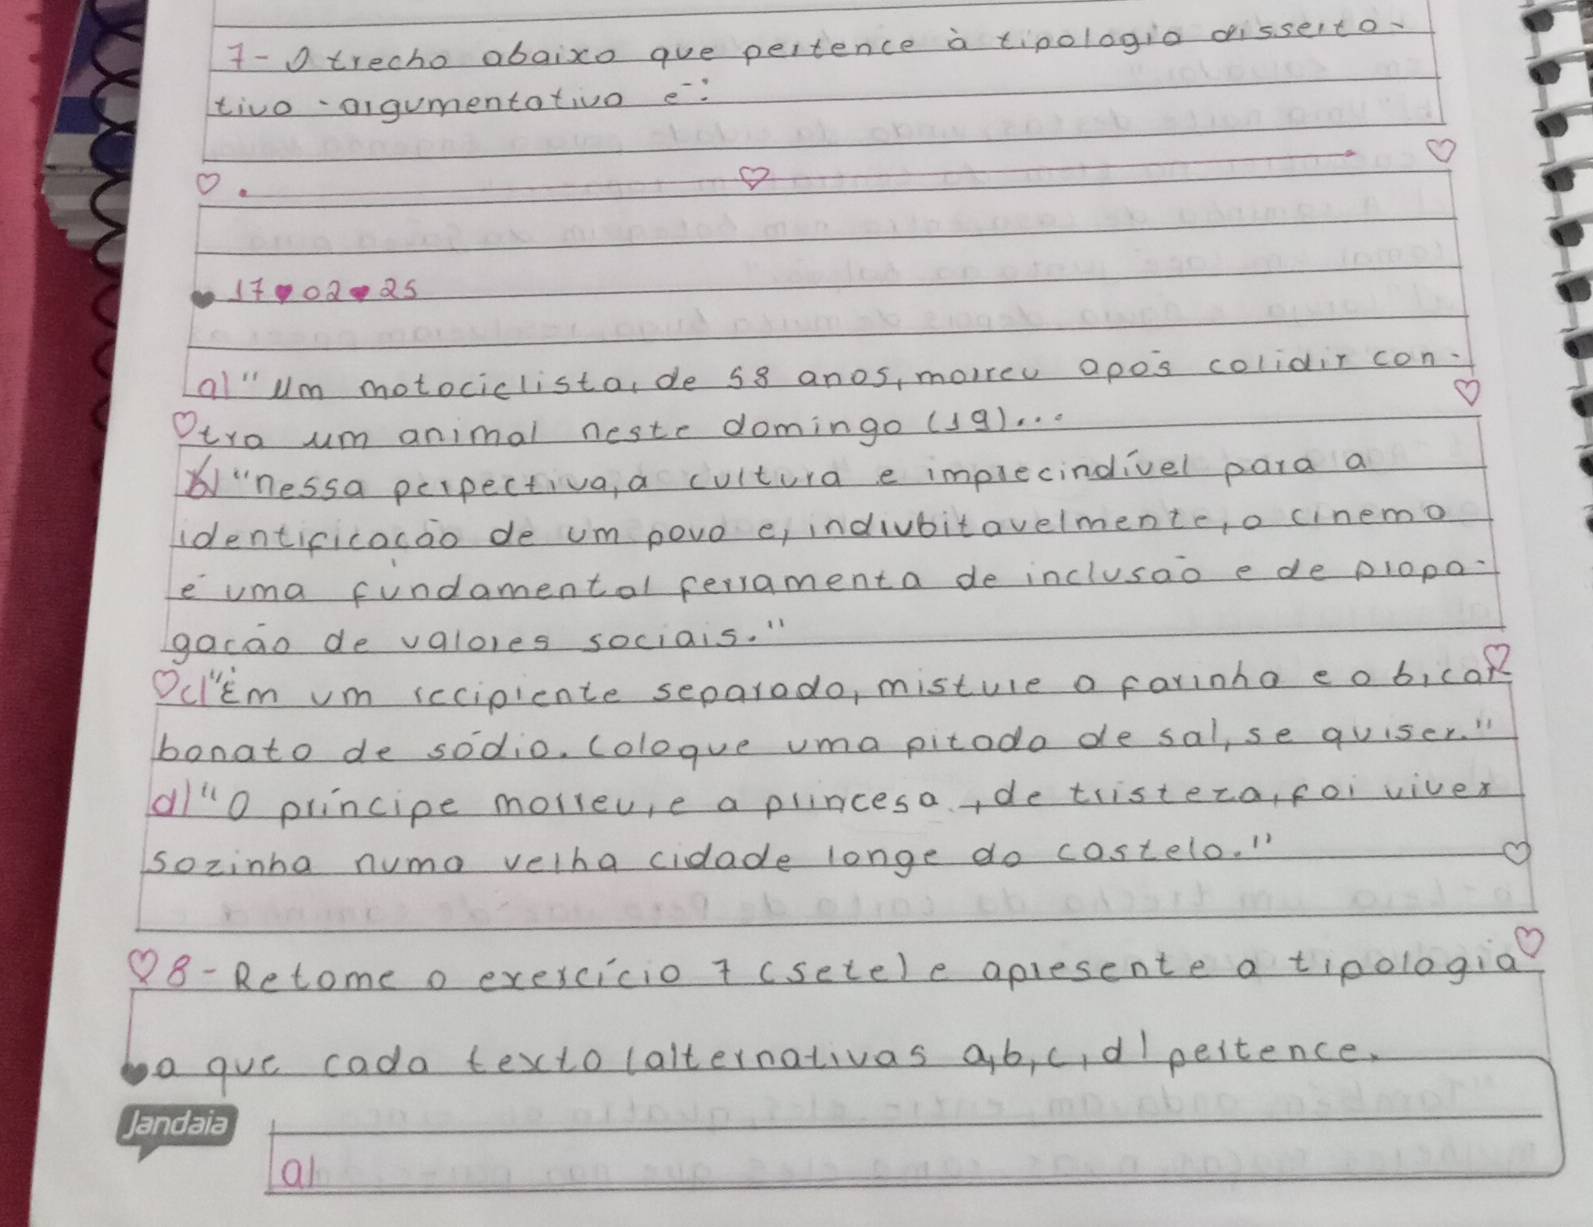 7- O trecho abaixo que pertence à tipologia disserta-
tivo-argumentativo é:
17 02 25
a) "Um motociclista, de 58 anos, morreu após colidir con-
tra um animal neste domingo (19)...
b) "nessa perpectiva, a cultura e imprecindível para a
identificação de um povo e, indiubitavelmente, o cinema
é uma fundamental ferramenta de inclusão e de propa-
gação de valores sociais."
c) "Em um recipiente separado, misture a farinha e o bicar
bonato de sódio. Coloque uma pitada de sal, se quiser."
d) "O príncipe morreu, e a princesa, de tristeza, foi viver
sozinha numa velha cidade longe do castelo."
8- Retome o exercício 7 (sete) e apresente a tipologia
a que cada texto (alternativas a, b, c, d) pertence.
Jandaia
a)